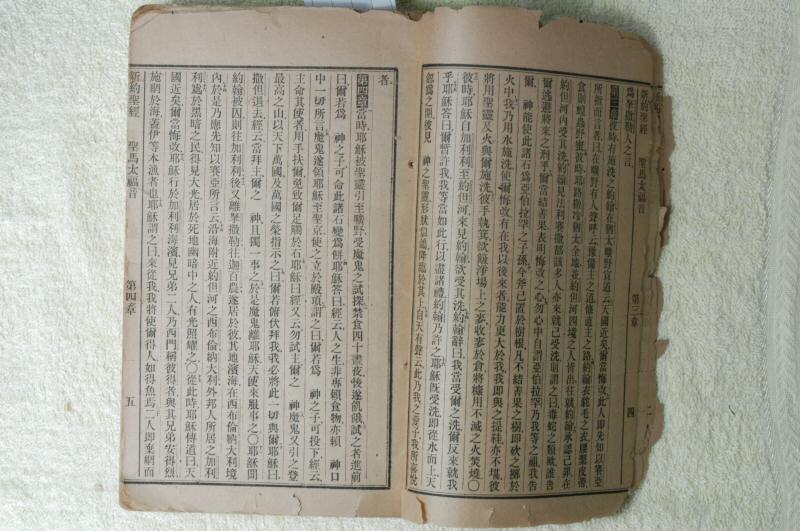 新約聖經 聖馬太福音 第三章 四
爲拏撒勒人之言
第三章 彼時有施洗之約翰在猶太曠野宣道云天國近矣爾當悔改此人即先知以賽亞
所指而言者曰在曠野有人聲呼云豫備主之道修直主之路約翰衣駱毛之衣腰繫皮帶
食則蝗蟲野蜜彼時耶路撒冷猶太全地並約但河四境之人皆出往就約翰承認己罪在
約但河內受其洗約翰見法利賽撒都該多人亦來就己受洗則謂之曰毒蛇之類歟誰告
爾逃避將來之刑乎爾當結善果表明悔改之心勿心中自謂亞伯拉罕乃我等之祖我告
爾 神能使此諸石爲亞伯拉罕之子孫今斧已置於樹根凡不結善果之樹即砍之擲於
火中我乃用水施洗使爾悔改有在我以後來者能力更大於我我即其之提鞋亦不堪彼
將用聖靈及火與爾施洗彼手執箕欲簸淨場上之麥收麥於倉將糠用不滅之火焚燒〇
彼時耶穌自加利利至約但河來見約翰欲受其洗約翰辭曰我當受爾之洗爾反來就我
乎耶穌答曰爾暫許我我等當如此行以盡諸禮約翰乃許之耶穌既受洗即從水而上天
忽爲之開彼見 神之聖靈形狀似鴿降臨於其上自天有聲云此乃我之愛子我所喜悅
者
第四章 當時耶穌被聖靈引至曠野受魔鬼之試探禁食四十晝夜後遂飢餓試之者進前
曰爾若爲 神之子可命此諸石變爲餅耶穌答曰經云人之生非專賴食物亦賴 神口
中一切所言魔鬼遂領耶穌至聖京使之立於殿頂謂之曰爾若爲 神之子可投下經云
主命其使者用手扶爾免致爾足觸於石耶穌曰經又云勿試主爾之 神魔鬼又引之登
最高之山以天下萬國及萬國之榮指示之曰爾若俯伏拜我我必將此一切與爾耶穌曰
撒但退去經云當拜主爾之 神且獨一事之於是魔鬼離耶穌天使來服事之〇耶穌聞
約翰被囚則往加利利後又離拏撒勒往迦百農遂居於彼其地濱海在西布倫納大利境
內於是乃應先知以賽亞所言云沿海附近約但河之西布倫納大利外邦人所居之加利
利處於黑暗之民得見大光居於死地幽暗中之人有光照耀之〇從此時耶穌傳道曰天
國近矣爾當悔改耶穌行於加利利海濱見兄弟二人乃西門稱彼得者與其兄弟安得烈
施網於海蓋伊等本漁者也耶穌謂之曰來從我我將使爾得人如得魚焉二人即棄網而
新約聖經 聖馬太福音 第四章 五